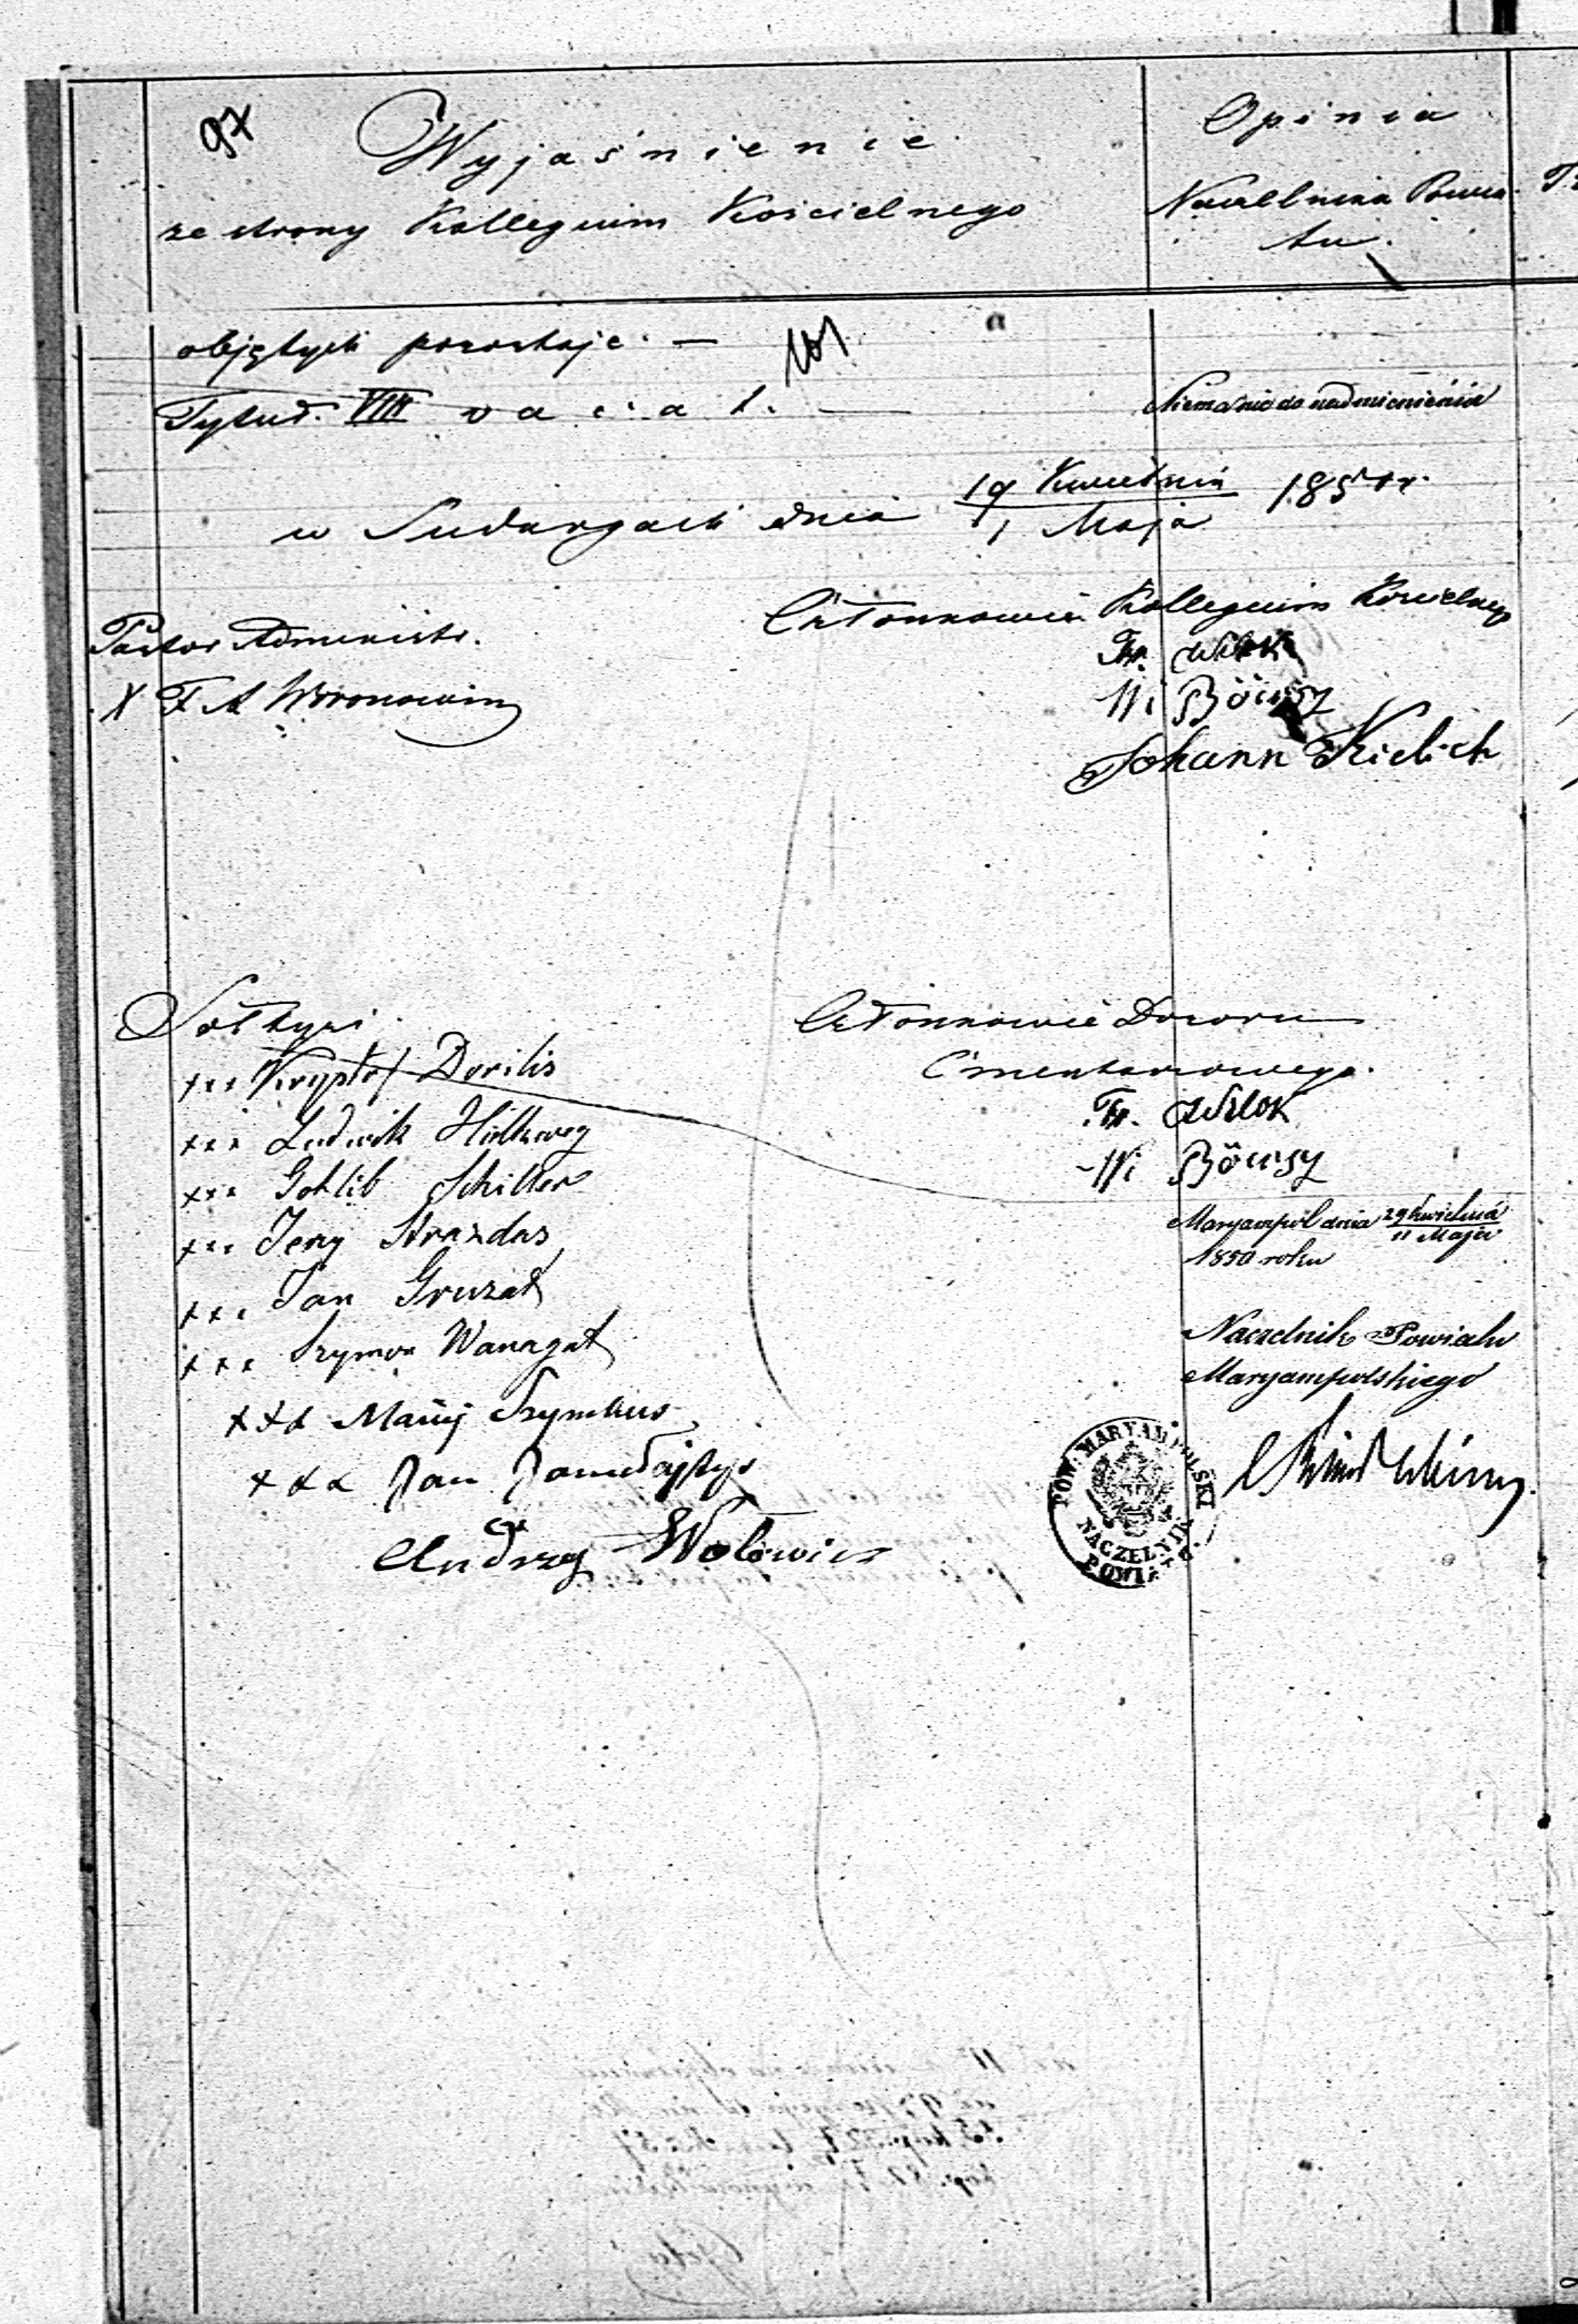 97
Wyjaśnienie
ze strony Kollegium Kościelnego
Opinia
Naczelnika Powia-
tu.
objętych pozostaje. —
101
Tytuł. VIII vacat. —
Niema nic do nadmienienia
w Sudargach dnia 19 Kwietnia / 1 Maja 1850 r.
Pastor Administr.
X F. A Woronowicz
Członkowie Kollegium Kościelnego
Fr. Wilk
Wi Böwsy
Johann Kielich
Sołtysi
xxx Krysztof Derilis
xxx Ludwik Hiltweg
xxx Gotlib Schiller
xxx Jerzy Strazdas
xxx Jan Gruzat
xxx Szymon Wanagat
xxx Maciej Szymkus
xxx Jan
Andrzej Wołowicz
Członkowie Dozoru
Cmentarzowego.
Fr.
Wi Böwsy
Maryampol dnia 29 Kwietnia / 11 Maja
1850 roku
Naczelnik Powiatu
Maryampolskiego
POW. MARYAMPOLSKI
NACZELNIK
POWIATU.